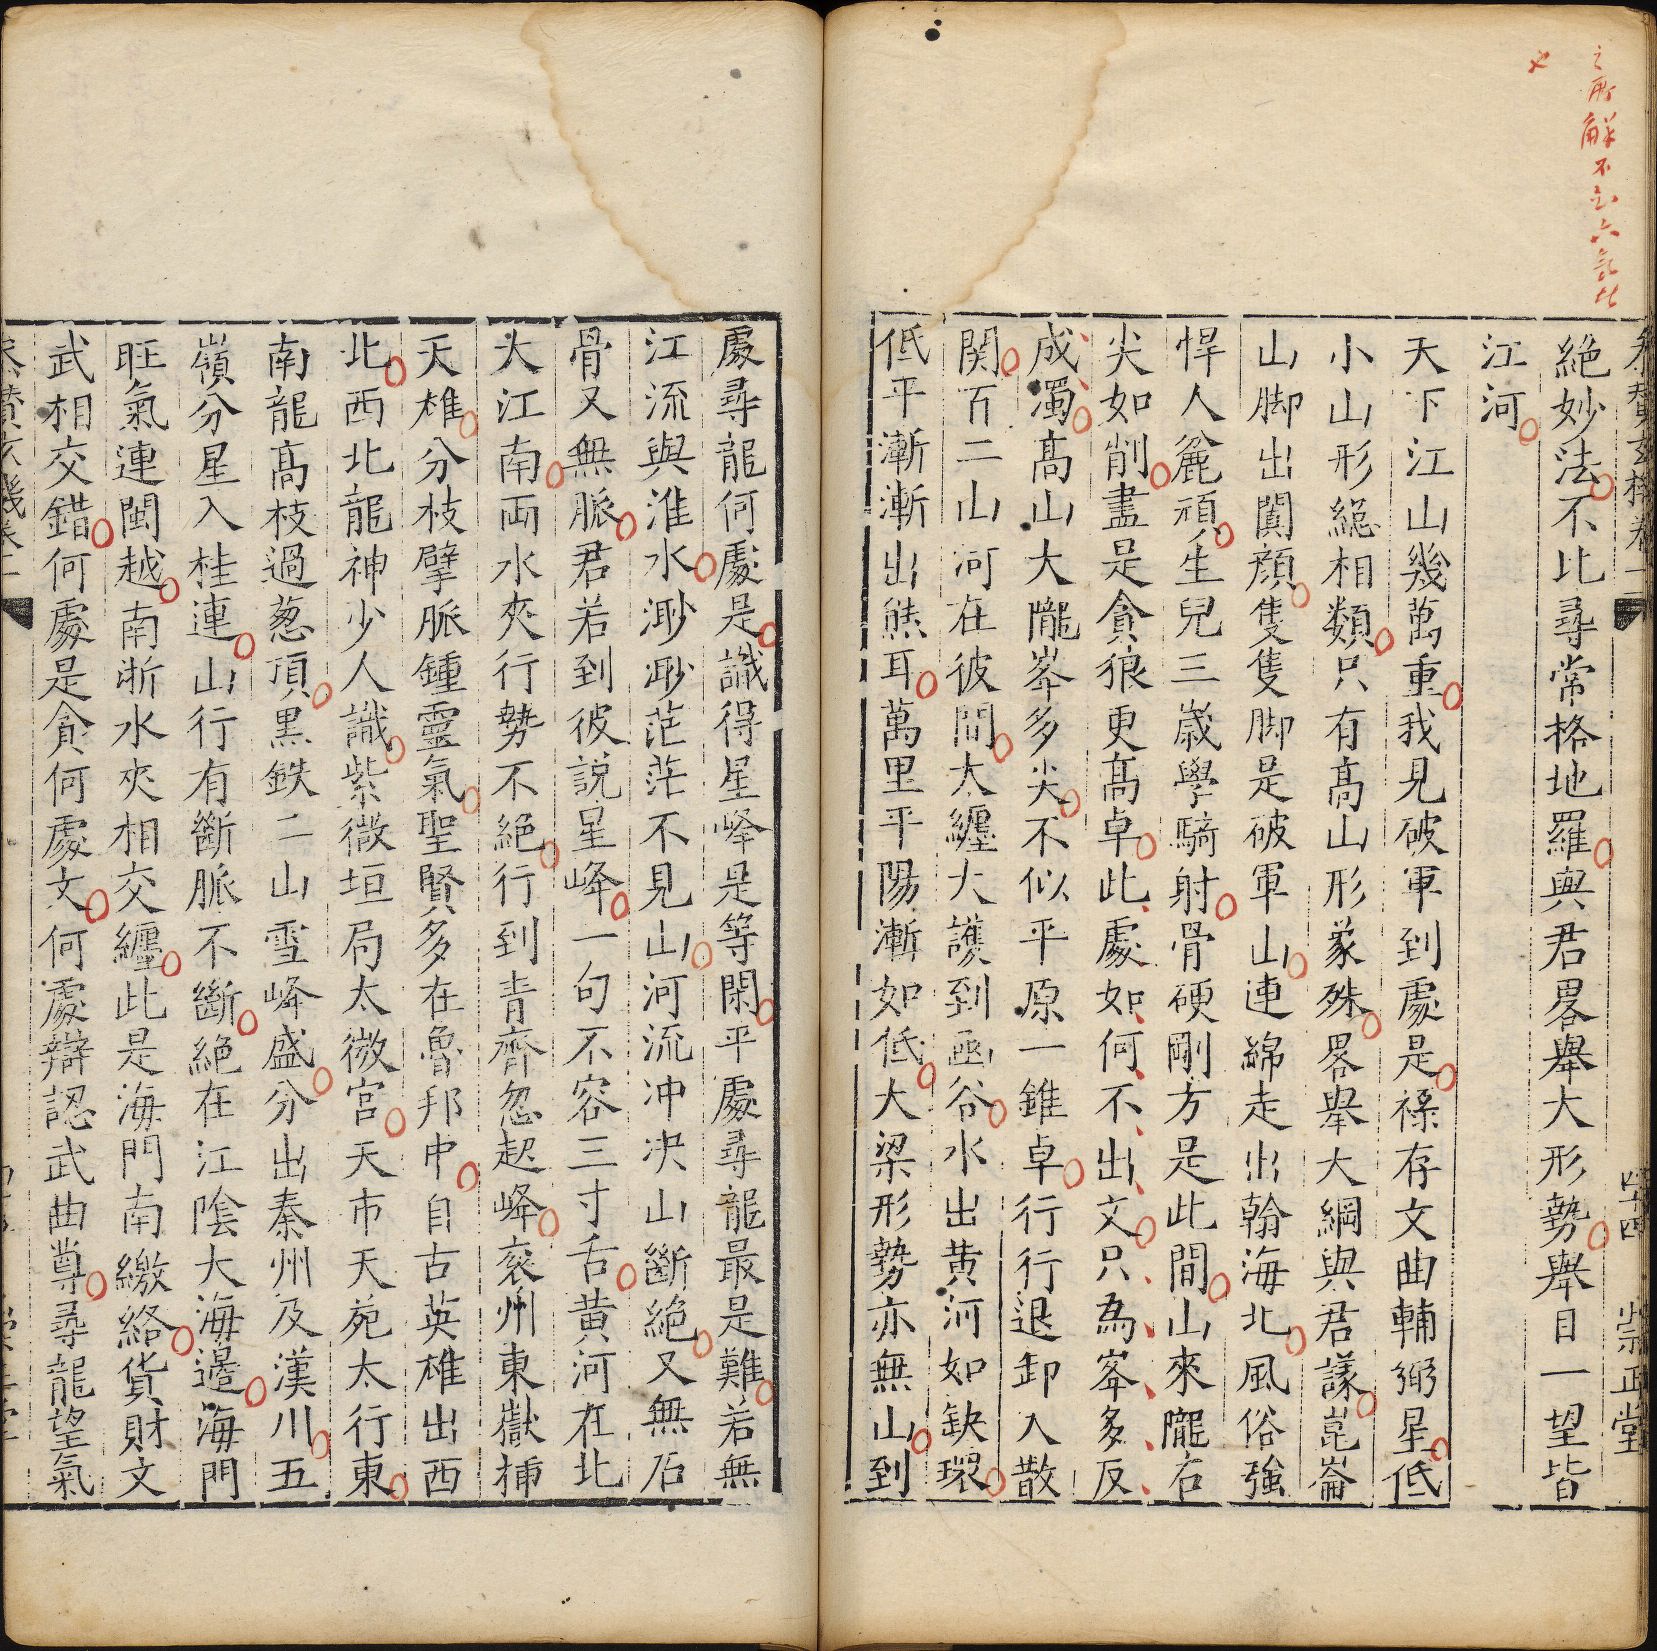 之所解不知六氣
絕妙法不比尋常格地羅與君畧舉大形勢舉目一望皆
江河
天下江山幾萬重我見破軍到處是祿存文曲輔弼星低
小山形總相類只有高山形象殊畧舉大綱與君議崑崙
山脚出闐顏隻隻脚是破軍山連綿走出瀚海北風俗強
悍人麄頑生兒三歲學騎射骨硬剛方是此間山來隴右
尖如削盡是貪狼更高卓此處如何不出文只為峯多反
成濁高山大隴峯多尖不似平原一錐卓行行退卸入散
関百二山河在彼間大纏大護到函谷水出黃河如缺環
低平漸漸出熊耳萬里平陽漸如低大梁形勢亦無山到
四十四 崇正堂
處尋龍何處是識得星峰是等閑平處尋龍最是難若無
江流與淮水渺渺茫茫不見山河流冲决山斷絶又無石
骨又無脈君若到彼說星峰一句不容三寸舌黃河在北
大江南兩水夾行勢不絕行到青齊忽起峰兖州東嶽插
天雄分枝擘脈鍾靈氣聖賢多在魯邦中自古英雄出西
北西北龍神少人識紫微垣局太微宮天市天苑太行東
南龍高枝過葱頂黒鉄二山雪峰盛分出秦州及漢川五
嶺分星入桂連山行有斷脈不斷絕在江陰大海邊海門
旺氣連閩越南浙水夾相交纏此是海門南繳絡貨財文
武相交錯何處是貪何處文何處辯認武曲尊尋龍望氣